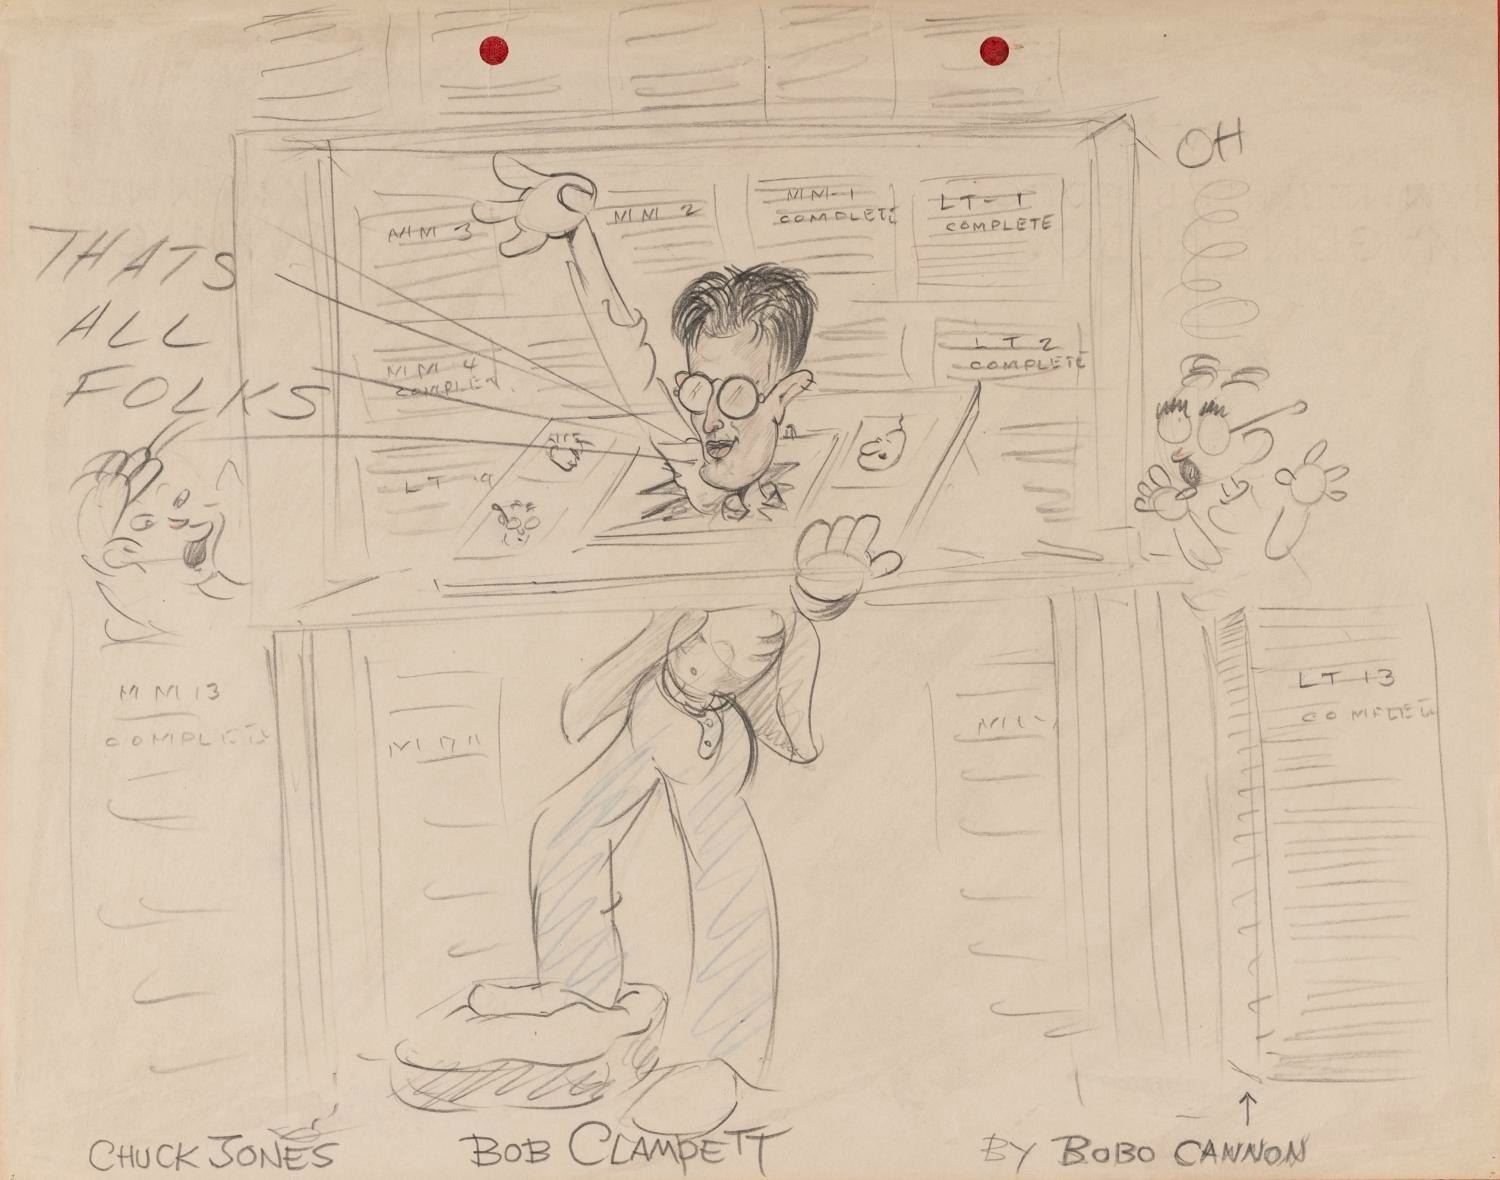 OH
THATS
ALL
FOLKS
MM 3
MM 2
MM-1
COMPLETE
LT-1
COMPLETE
MM 4
COMPLET.
LT 2
COMPLETE
LT
MM 13
COMPLETE
LT 13
COMPLETE
CHUCK JONES
BOB CLAMPETT
BY BOBO CANNON